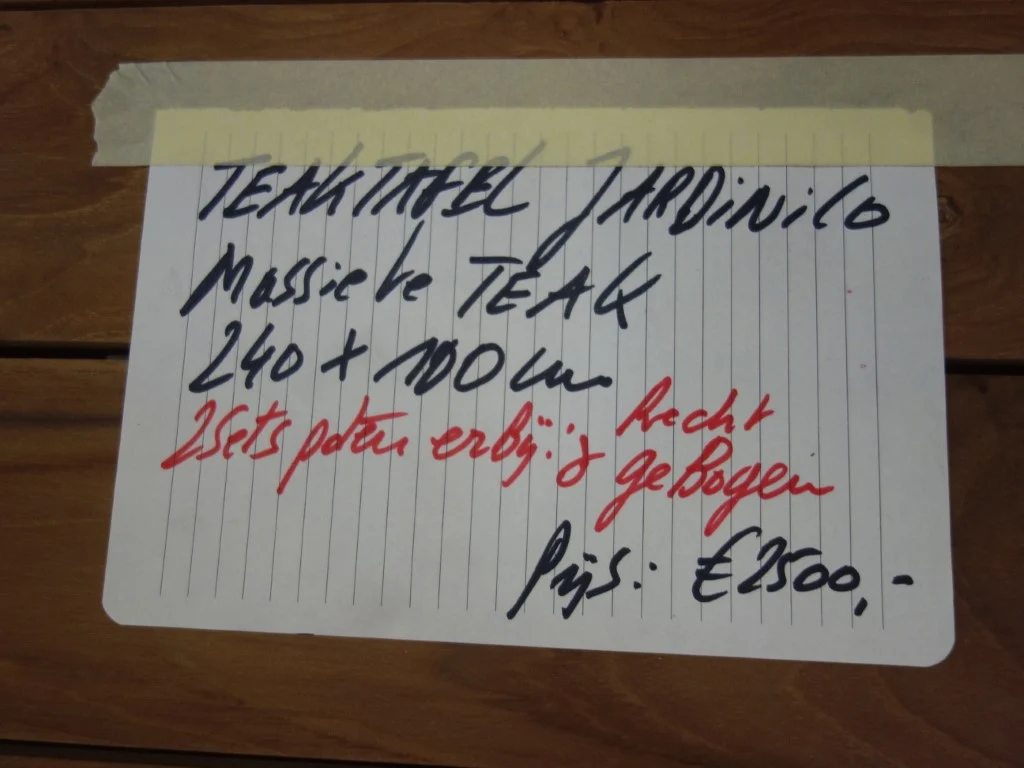 TEAKTAFEL JARDiNiCo
Massieve TEAK
240 x 100 cm
2sets poten erbij: Recht
& geBogen
Prijs: €2500,-